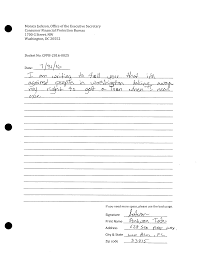 Monica Jackson, Office of the Executive Secretary
Consumer Financial Protection Bureau
1700 G Street, NW
Washington, DC 20552
Docket No. CFPB-2016-0025
Date:
I am writing to tell you that it's
against people in washington taking away
my right to get a loan when I need
one.
If you need more space, please use the back page.
Signature
Print Name
Address
City & State
Zip code